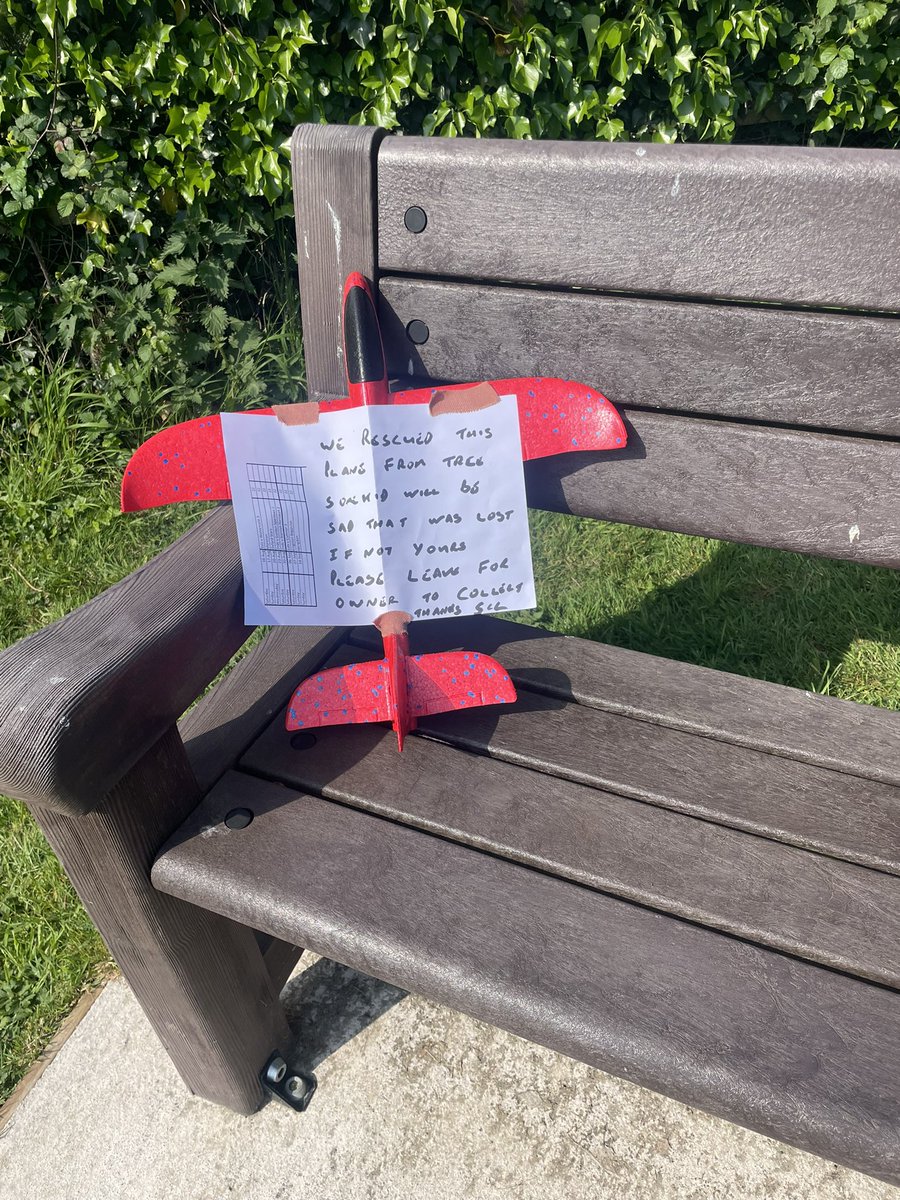 WE RESCUED THIS
PLANE FROM TREE
SOMEKID WILL BE
SAD THAT WAS LOST
IF NOT YOURS
PLEASE LEAVE FOR
OWNER TO COLLECT
THANKS